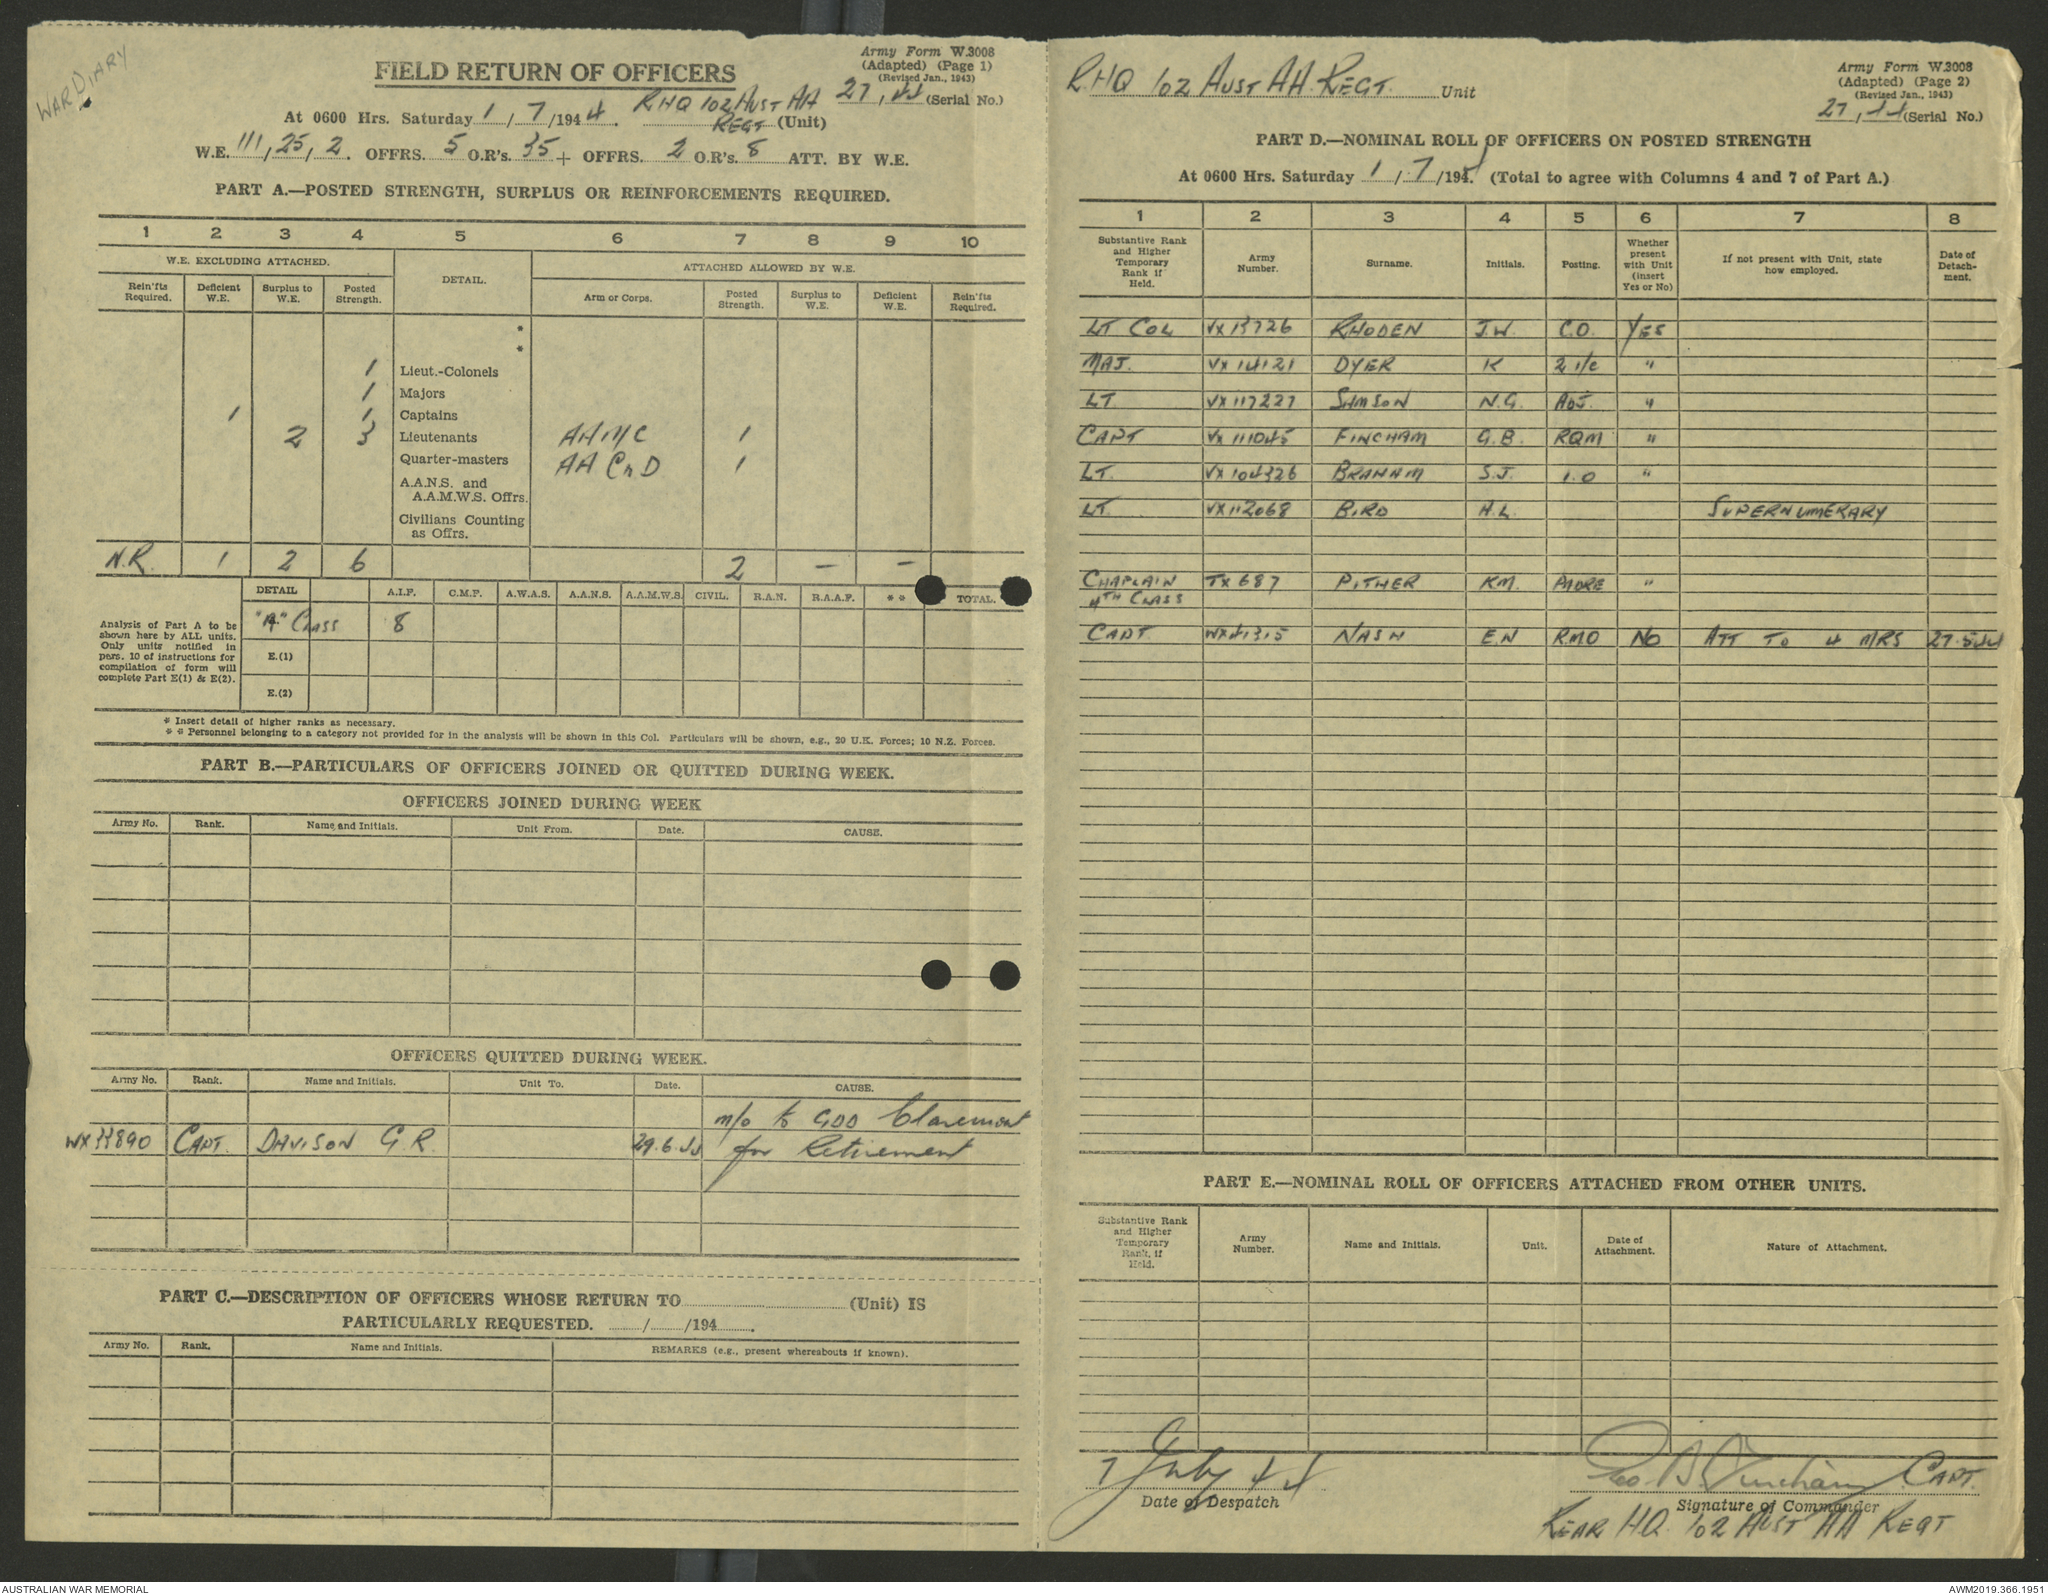 WAR DIARY
Army Form W.3008
(Adapted) (Page 1)
(Revised Jan., 1943)
FIELD RETURN OF OFFICERS
27, 44 (Serial No.)
At 0600 Hrs. Saturday 1/7/1944. RHQ 102 AUST AA
REGT (Unit)
W.E. 111, 25, 2. OFFRS. 5 O.R's. 35 + OFFRS. 2 O.R's. 8 ATT. BY W.E.
PART A.—POSTED STRENGTH, SURPLUS OR REINFORCEMENTS REQUIRED.
1 2 3 4 5 6 7 8 9 10
W.E. EXCLUDING ATTACHED. DETAIL. ATTACHED ALLOWED BY W.E.
Rein'fts Required. Deficient W.E. Surplus to W.E. Posted Strength. Arm or Corps. Posted Strength. Surplus to W.E. Deficient W.E. Rein'fts Required.
*
*
1 Lieut.-Colonels
1 Majors
1 1 Captains
2 3 Lieutenants AAMC 1
Quarter-masters AA ChD 1
A.A.N.S. and
A.A.M.W.S. Offrs.
Civilians Counting
as Offrs.
N.R. 1 2 6 2 — —
DETAIL A.I.F. C.M.F. A.W.A.S. A.A.N.S. A.A.M.W.S. CIVIL. R.A.N. R.A.A.F. * * TOTAL.
Analysis of Part A to be
shown here by ALL units.
Only units notified in
para. 10 of instructions for
compilation of form will
complete Part E(1) & E(2).
"A" CLASS 8
E.(1)
E.(2)
* Insert detail of higher ranks as necessary.
* * Personnel belonging to a category not provided for in the analysis will be shown in this Col. Particulars will be shown, e.g., 20 U.K. Forces; 10 N.Z. Forces.
PART B.—PARTICULARS OF OFFICERS JOINED OR QUITTED DURING WEEK.
OFFICERS JOINED DURING WEEK
Army No. Rank. Name and Initials. Unit From. Date. CAUSE.
OFFICERS QUITTED DURING WEEK.
Army No. Rank. Name and Initials. Unit To. Date. CAUSE.
m/o to GDD Claremont
WX33890 CAPT. DAVISON G.R. 29.6.44 for Retirement
PART C.—DESCRIPTION OF OFFICERS WHOSE RETURN TO (Unit) IS
PARTICULARLY REQUESTED. / /194 .
Army No. Rank. Name and Initials. REMARKS (e.g., present whereabouts if known).
Army Form W.3008
(Adapted) (Page 2)
(Revised Jan., 1943)
RHQ 102 AUST AA REGT. Unit
27, 44 (Serial No.)
PART D.—NOMINAL ROLL OF OFFICERS ON POSTED STRENGTH
At 0600 Hrs. Saturday 1/7/1944. (Total to agree with Columns 4 and 7 of Part A.)
1 2 3 4 5 6 7 8
Substantive Rank and Higher Temporary Rank if Held. Army Number. Surname. Initials. Posting. Whether present with Unit (insert Yes or No) If not present with Unit, state how employed. Date of Detach- ment.
LT COL VX13726 RHODEN J.W. C.O. YES
MAJ. VX14121 DYER K 2 i/c "
LT. VX117227 SIMSON N.G. ADJ. "
CAPT VX111045 FINCHAM G.B. RQM "
LT. VX104326 BRAHAM S.J. I.O "
LT. VX112068 BIRD H.L. SUPERNUMERARY
CHAPLAIN TX687 PITHER KM. PADRE "
4TH CLASS
CAPT. WX41315 NASH E.N RMO NO ATT TO 4 MRS 27.5.44
PART E.—NOMINAL ROLL OF OFFICERS ATTACHED FROM OTHER UNITS.
Substantive Rank and Higher Temporary Rank, if Held. Army Number. Name and Initials. Unit. Date of Attachment. Nature of Attachment.
1 July 44
Date of Despatch
Geo B. Fincham CAPT.
Signature of Commander
REAR HQ. 102 AUST AA REGT
AUSTRALIAN WAR MEMORIAL
AWM2019.366.1951